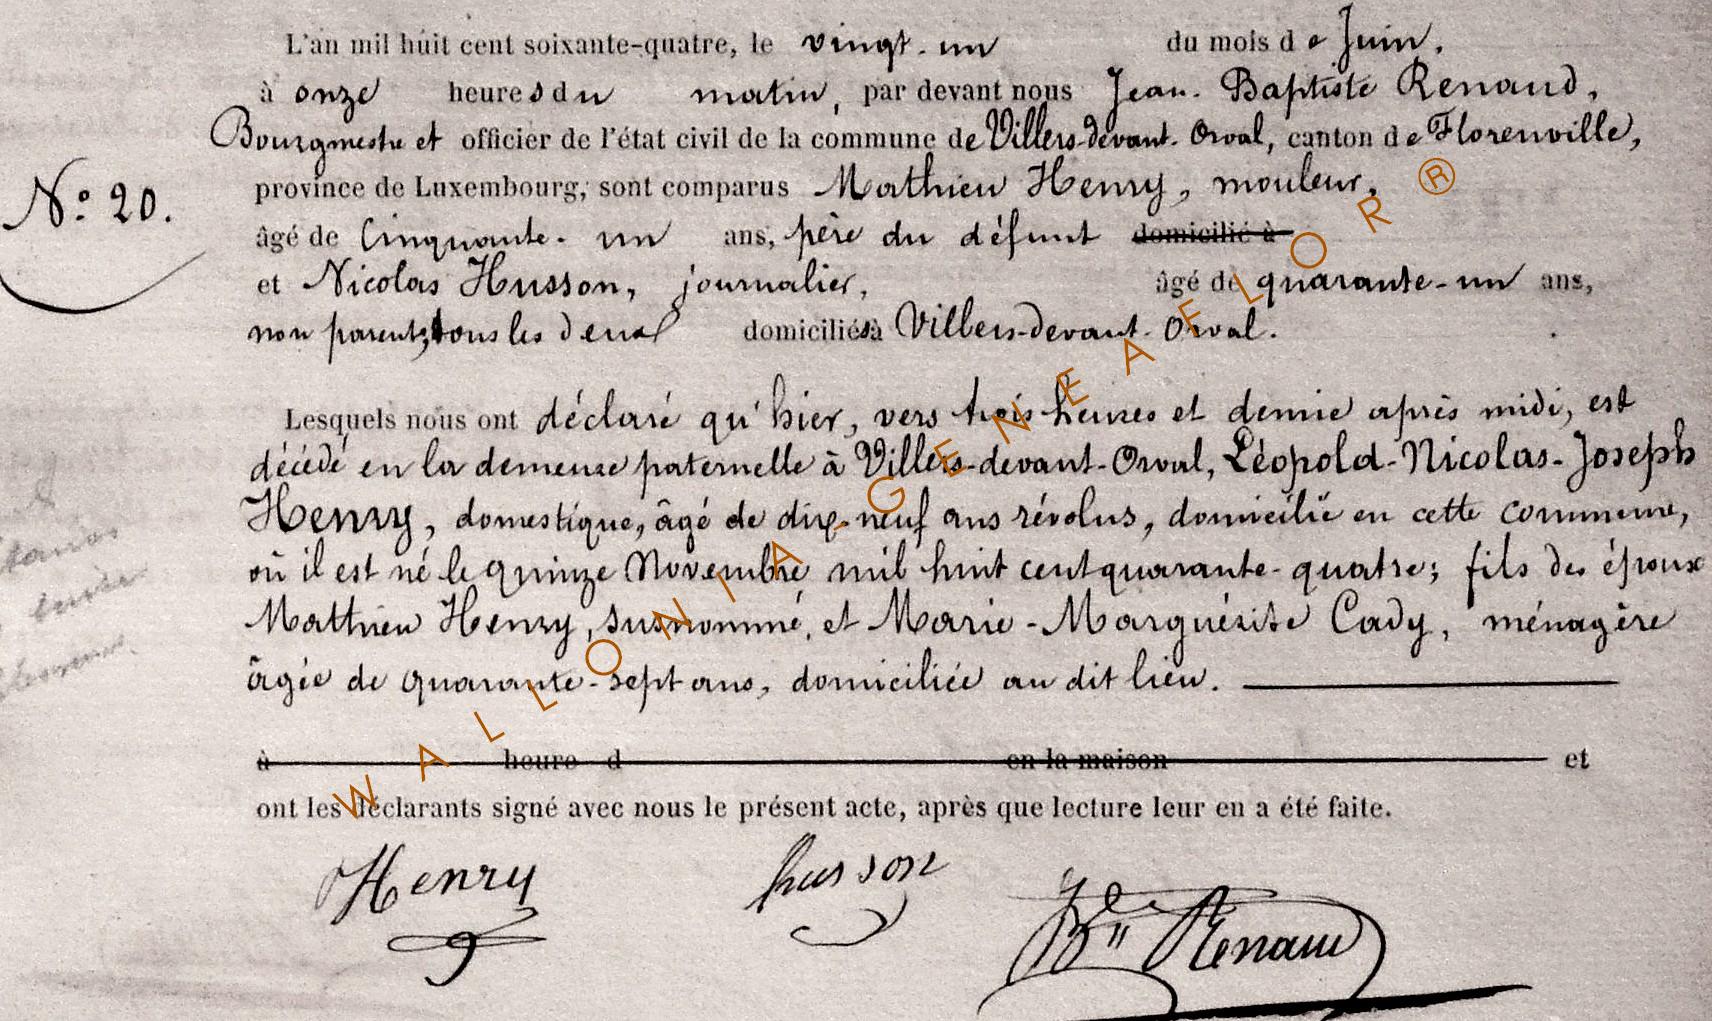 L'an mil huit cent soixante-quatre, le vingt-un du mois de Juin,
à onze heures du matin, par devant nous Jean-Baptiste Renaud,
Bourgmestre et officier de l'état civil de la commune de Villers-devant-Orval, canton de Florenville,
N.o 20.
province de Luxembourg, sont comparus Mathieu Henry, mouleur,
âgé de Cinquante-un ans, père du défunt domicilié à
et Nicolas Husson, journalier, âgé de quarante-un ans,
non parents, tous les deux domiciliés à Villers-devant-Orval.
Lesquels nous ont déclaré qu'hier, vers trois heures et demie après midi, est
décédé en la demeure paternelle à Villers-devant-Orval, Léopold-Nicolas-Joseph
Henry, domestique, âgé de dix-neuf ans révolus, domicilié en cette commune,
où il est né le quinze Novembre mil huit cent quarante-quatre; fils des époux
Mathieu Henry, susnommé, et Marie-Marguérite Cady, ménagère
âgée de quarante-sept ans, domiciliée au dit lieu.
à heure d en la maison et
ont les déclarants signé avec nous le présent acte, après que lecture leur en a été faite.
Henry husson Jn Bte Renaud
WALLONIA-GENEAFLOR®